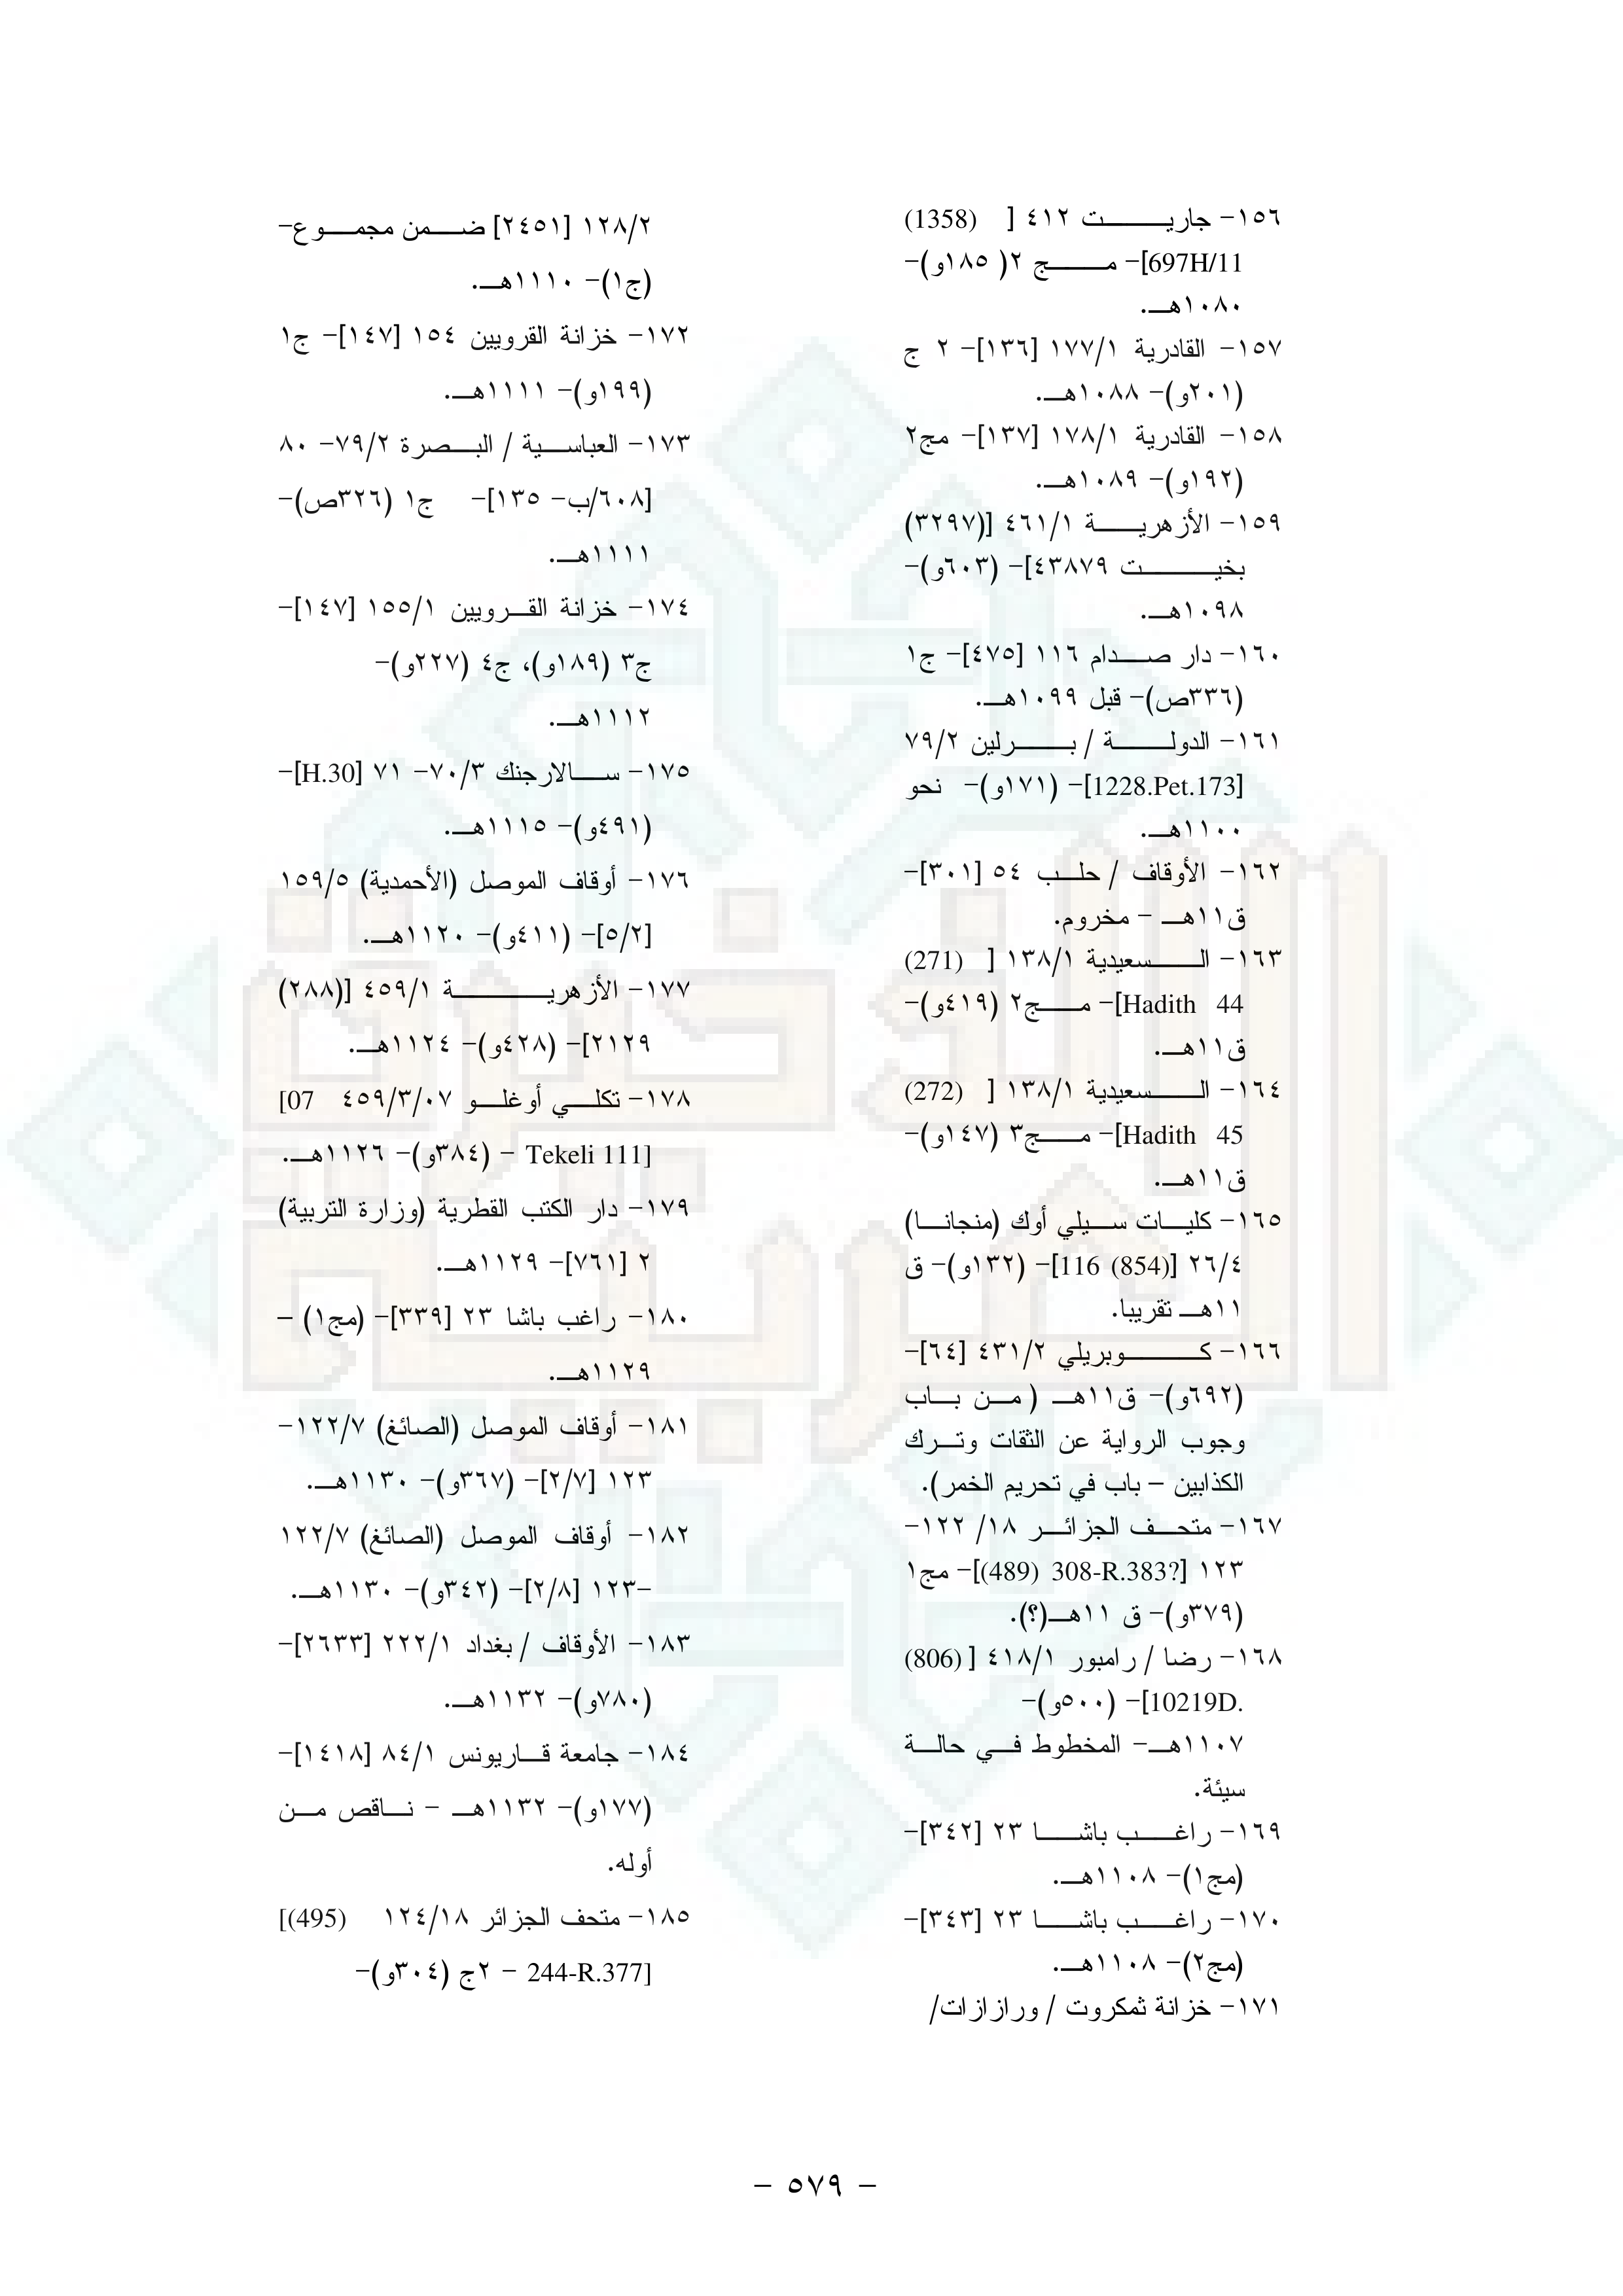 ١٥٦- جاريت ٤١٢ [ (1358)
697H/11]- مج ٢( ١٨٥و)-
١٠٨٠هـ.
١٥٧- القادرية ١٧٧/١ [١٣٦]- ٢ ج
(٢٠١و)- ١٠٨٨هـ.
١٥٨- القادرية ١٧٨/١ [١٣٧]- مج٢
(١٩٢و)- ١٠٨٩هـ.
١٥٩- الأزهرية ٤٦١/١ [(٣٢٩٧)
بخيت ٤٣٨٧٩]- (٦٠٣و)-
١٠٩٨هـ.
١٦٠- دار صدام ١١٦ [٤٧٥]- ج١
(٣٣٦ص)- قبل ١٠٩٩هـ.
١٦١- الدولة / برلين ٧٩/٢
[1228.Pet.173]- (١٧١و)- نحو
١١٠٠هـ.
١٦٢- الأوقاف / حلب ٥٤ [٣٠١]-
ق١١هـ - مخروم.
١٦٣- السعيدية ١٣٨/١ [ (271)
Hadith 44]- مج٢ (٤١٩و)-
ق١١هـ.
١٦٤- السعيدية ١٣٨/١ [ (272)
Hadith 45]- مج٣ (١٤٧و)-
ق١١هـ.
١٦٥- كليات سيلي أوك (منجانا)
٢٦/٤ [116 (854)]- (١٣٢و)- ق
١١هـ تقريبا.
١٦٦- كوبريلي ٤٣١/٢ [٦٤]-
(٦٩٢و)- ق١١هـ ( من باب
وجوب الرواية عن الثقات وترك
الكذابين – باب في تحريم الخمر).
١٦٧- متحف الجزائر ١٨/ ١٢٢-
١٢٣ [(489) 308-R.383?]- مج١
(٣٧٩و)- ق ١١هـ(؟).
١٦٨- رضا / رامبور ٤١٨/١ [ (806)
10219D.]- (٥٠٠و)-
١١٠٧هـ- المخطوط في حالة
سيئة.
١٦٩- راغب باشا ٢٣ [٣٤٢]-
(مج١)- ١١٠٨هـ.
١٧٠- راغب باشا ٢٣ [٣٤٣]-
(مج٢)- ١١٠٨هـ.
١٧١- خزانة ثمكروت / ورازازات/
١٢٨/٢ [٢٤٥١] ضمن مجموع-
(ج١)- ١١١٠هـ.
١٧٢- خزانة القرويين ١٥٤ [١٤٧]- ج١
(١٩٩و)- ١١١١هـ.
١٧٣- العباسية / البصرة ٧٩/٢- ٨٠
[٦٠٨/ب- ١٣٥]- ج١ (٣٢٦ص)-
١١١١هـ.
١٧٤- خزانة القرويين ١٥٥/١ [١٤٧]-
ج٣ (١٨٩و)، ج٤ (٢٢٧و)-
١١١٢هـ.
١٧٥- سالارجنك ٧٠/٣- ٧١ [H.30]-
(٤٩١و)- ١١١٥هـ.
١٧٦- أوقاف الموصل (الأحمدية) ١٥٩/٥
[٥/٢]- (٤١١و)- ١١٢٠هـ.
١٧٧- الأزهرية ٤٥٩/١ [(٢٨٨)
٢١٢٩]- (٤٢٨و)- ١١٢٤هـ.
١٧٨- تكلي أوغلو ٤٥٩/٣/٠٧ [07
Tekeli 111] - (٣٨٤و)- ١١٢٦هـ.
١٧٩- دار الكتب القطرية (وزارة التربية)
٢ [٧٦١]- ١١٢٩هـ.
١٨٠- راغب باشا ٢٣ [٣٣٩]- (مج١) –
١١٢٩هـ.
١٨١- أوقاف الموصل (الصائغ) ١٢٢/٧-
١٢٣ [٢/٧]- (٣٦٧و)- ١١٣٠هـ.
١٨٢- أوقاف الموصل (الصائغ) ١٢٢/٧
-١٢٣ [٢/٨]- (٣٤٢و)- ١١٣٠هـ.
١٨٣- الأوقاف / بغداد ٢٢٢/١ [٢٦٣٣]-
(٧٨٠و)- ١١٣٢هـ.
١٨٤- جامعة قاريونس ٨٤/١ [١٤١٨]-
(١٧٧و)- ١١٣٢هـ - ناقص من
أوله.
١٨٥- متحف الجزائر ١٢٤/١٨ [(495)
244-R.377] - ٢ج (٣٠٤و)-
- ٥٧٩ -